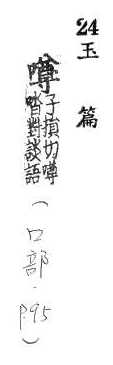 24玉篇
噂
子損切噂
喈對談語
(口部.P.95)